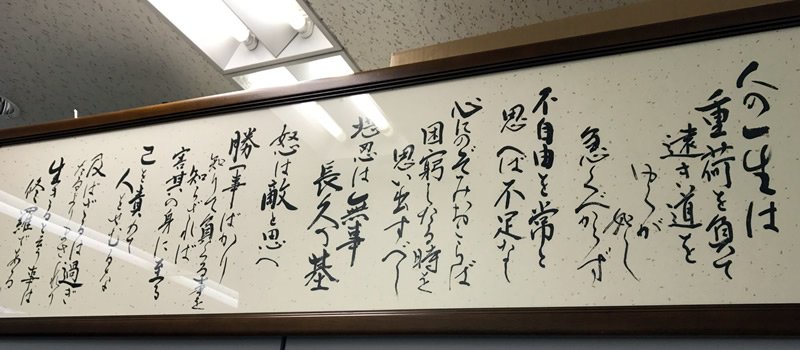 人の一生は
重荷を負て
遠き道を
ゆくが
如し
急ぐべからず
不自由を常と
思へば不足なし
心にのぞみおこらば
困窮したる時を
思ひ出すべし
堪忍は無事
長久の基
怒は敵と思へ
勝事ばかり
知りて負くる事を
知らざれば
害其の身に至る
己を責めて
人をせむるな
及ばざるは過ぎ
たるよりまされり
生きると云う事は
修羅である